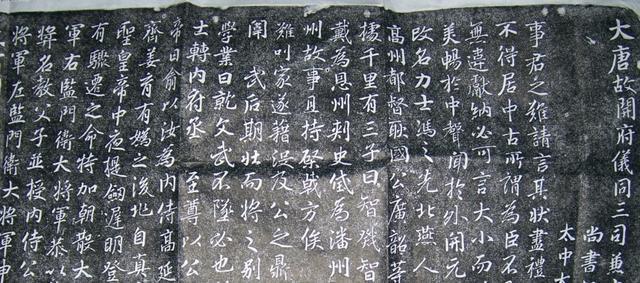 大唐故開府儀同三司兼
尚書
太中大
事君之難請言其狀盡禮
不得居中古所謂為臣不
無違獻納必可言大小而
美暢於中聲聞於外開元
改名力士馮之先北燕人
高州都督耿國公廣韶等
援千里有三子曰智戣智
戴為恩州刺史為潘州
州故事且持棨戟方俟
家遂籍沒及公之鼎
闈 武后期壯而將之别
學業曰文武不墜必也
士轉內府丞 至尊以公
帝曰俞以汝為內侍高延
齊姜育有媯之後地自真
聖皇帝中夜提劍遲明登
有驟遷之命特加朝散大
軍右監門衛大將軍恭以
彛名教父子並授內侍公
將軍左監門衛大將軍申